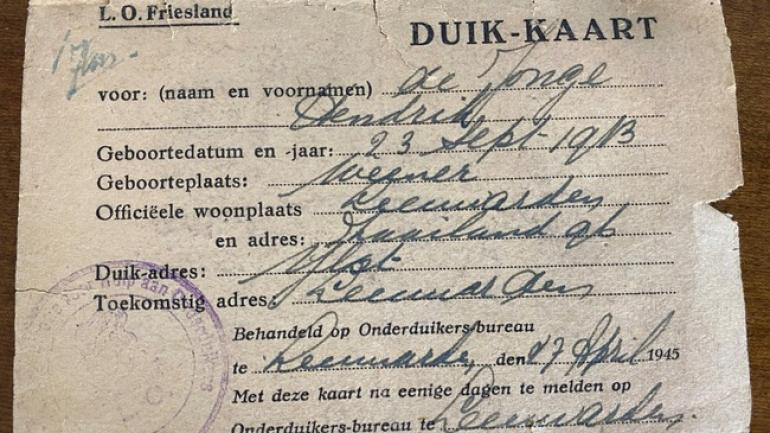 L. O. Friesland
DUIK-KAART
voor: (naam en voornamen) de Jonge
Hendrik
Geboortedatum en -jaar: 23 Sept 1913
Geboorteplaats: Weener
Officiëele woonplaats Leeuwarden
en adres:
Duik-adres: Ylst
Toekomstig adres: Leeuwarden
Behandeld op Onderduikers-bureau
te Leeuwarden, den 17 April 1945
Met deze kaart na eenige dagen te melden op
Onderduikers-bureau te Leeuwarden.